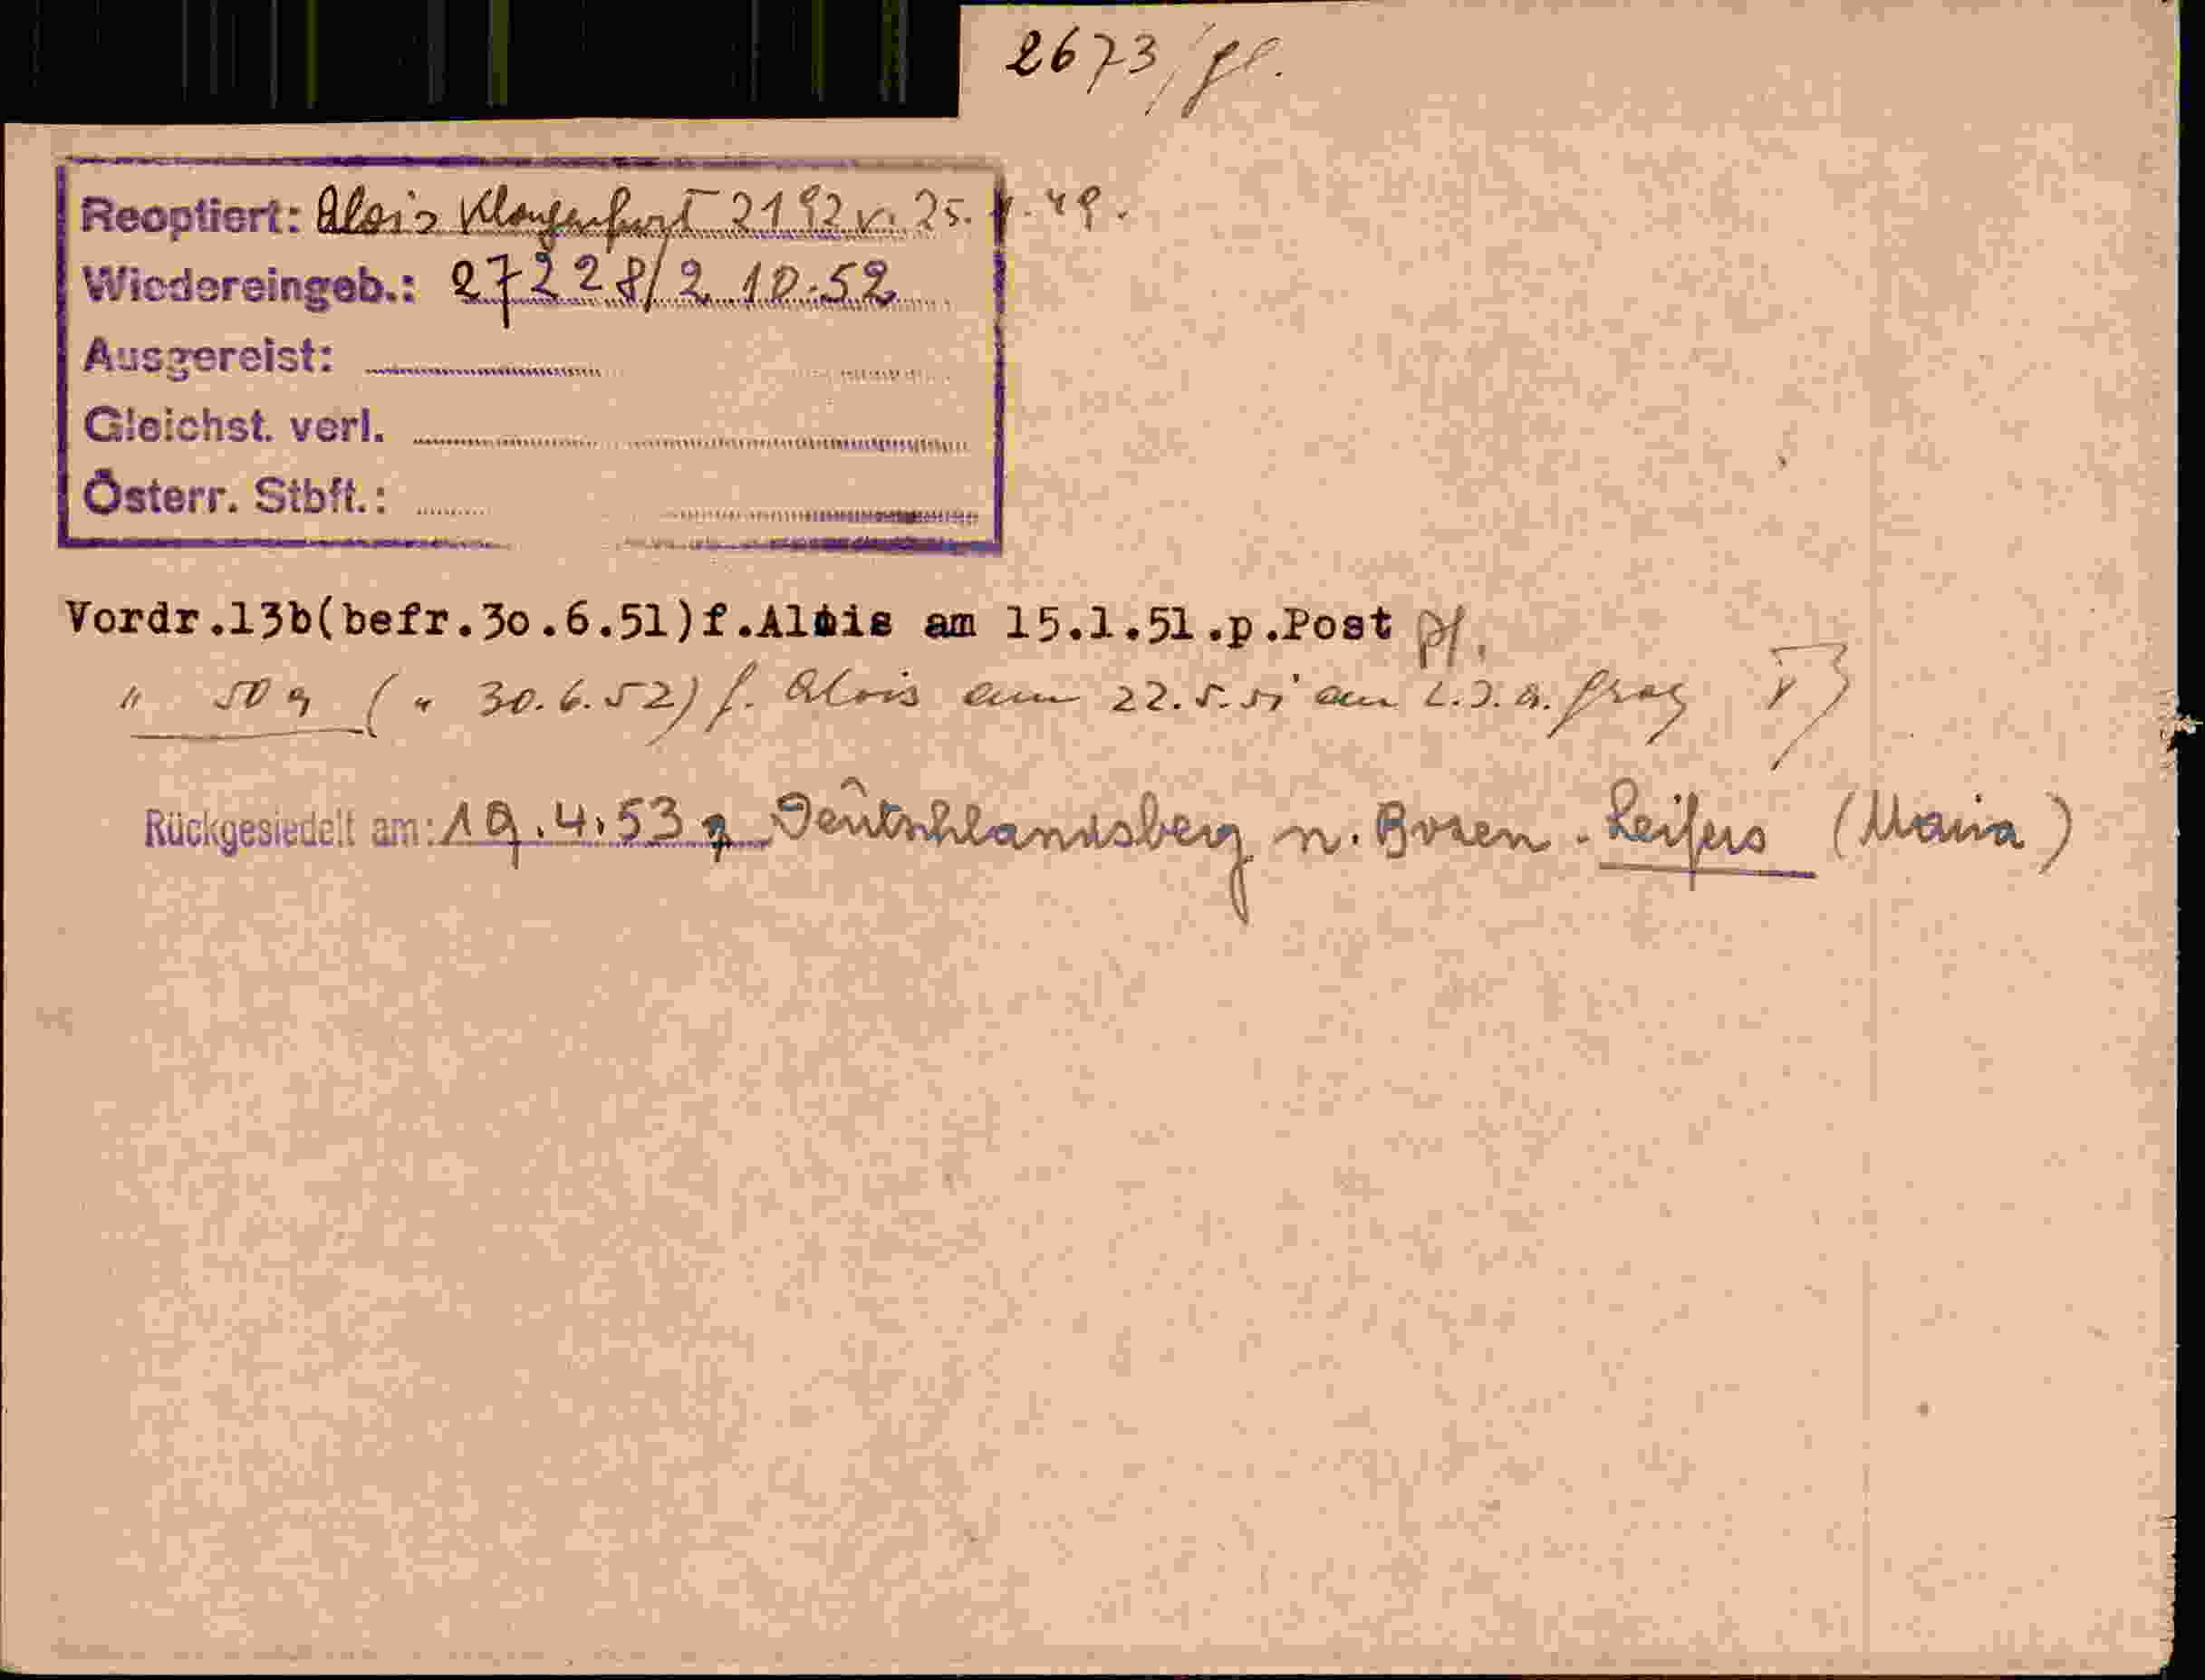 2673/gl.
Reoptiert: Alois Klagenfurt 2192 v. 25. 49.
Wiedereingeb.: 27228/2 10.52
Ausgereist:
Gleichst. verl.
Österr. Stbft.:
Vordr.13b(befr.30.6.51)f.Alois am 15.1.51.p.Post
" 50 a (" 30.6.52) f. Alois am 22.5.51 an L.I.A. Graz
Rückgesiedelt am: 19.4.53 Deutschlandsberg n. Bozen - Leifers (Maria)